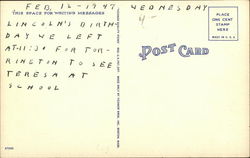 FEB, 12-1947 WEDNESDAY
THIS SPACE FOR WRITING MESSAGES
LINCOLN'S BIRTH-
DAY WE LEFT
AT-11:30 FOR TOR-
RINGTON TO SEE
TERESA AT
SCHOOL
POST CARD
PLACE
ONE CENT
STAMP
HERE
MADE IN U.S.A.